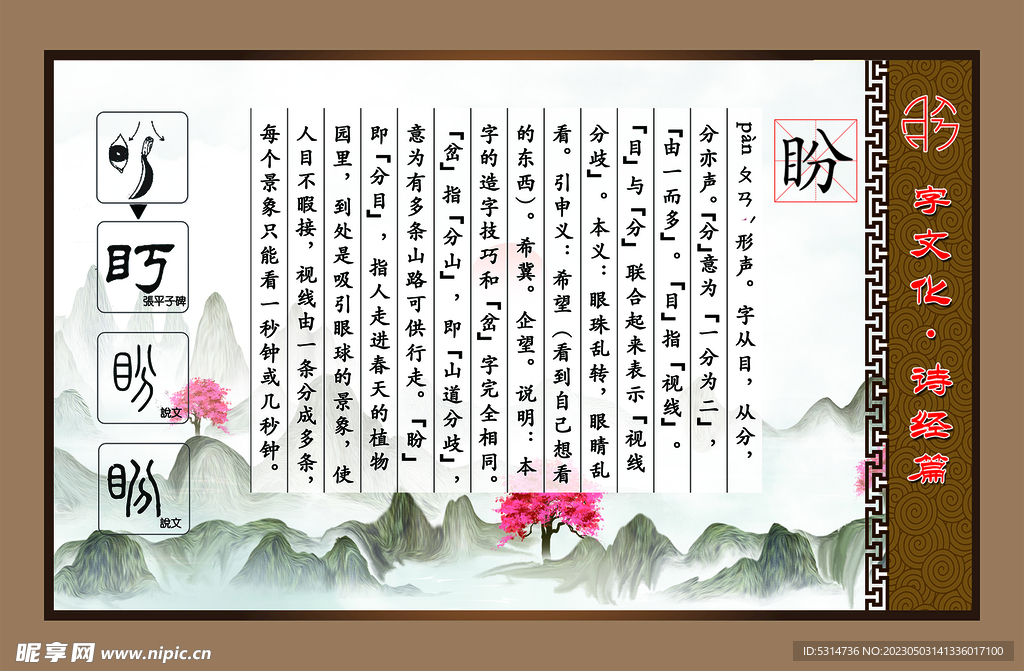 字文化·诗经篇
盼
pàn ㄆㄢˋ 形声。字从目，从分，
分亦声。「分」意为「一分为二」，
「由一而多」。「目」指「视线」。
「目」与「分」联合起来表示「视线
分歧」。本义：眼珠乱转，眼睛乱
看。引申义：希望（看到自己想看
的东西）。希冀。企望。说明：本
字的造字技巧和「岔」字完全相同。
「岔」指「分山」，即「山道分歧」，
意为有多条山路可供行走。「盼」
即「分目」，指人走进春天的植物
园里，到处是吸引眼球的景象，使
人目不暇接，视线由一条分成多条，
每个景象只能看一秒钟或几秒钟。
張平子碑
說文
說文
昵享网 www.nipic.cn
ID:5314736 NO:20230503141336017100